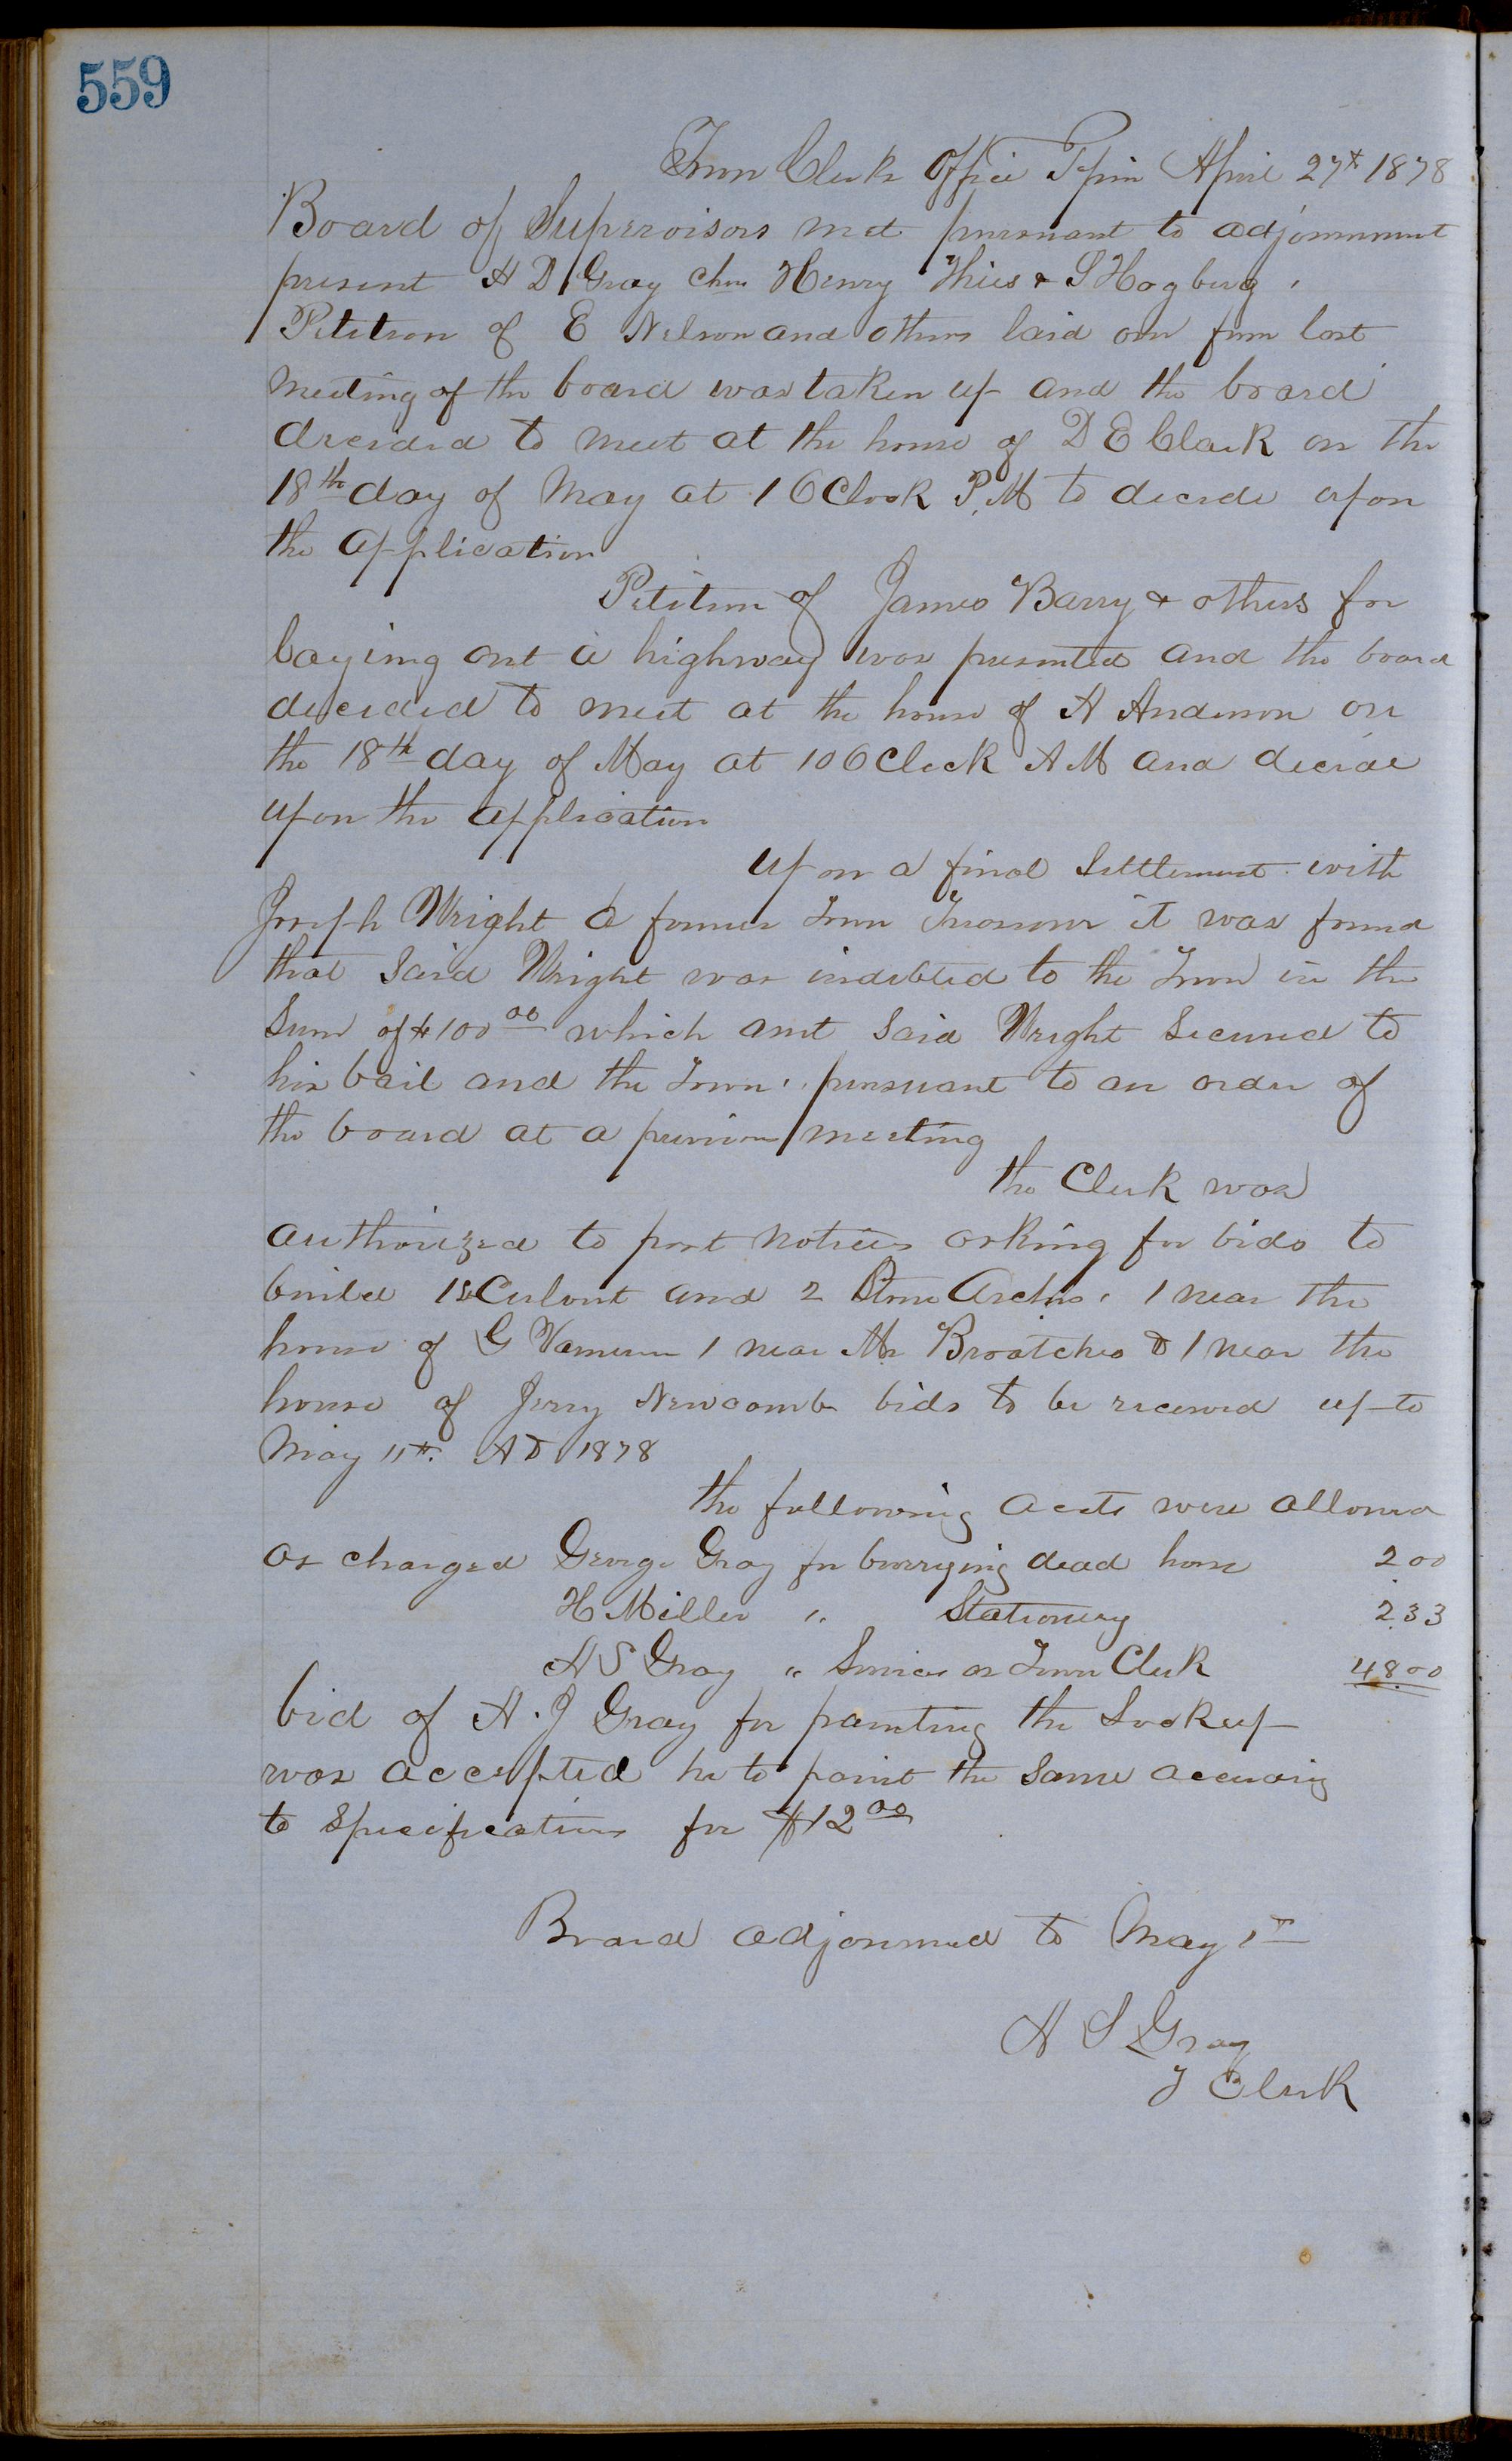 559
Town Clerks Office Pepin April 27th 1878
Board of Supervisors met pursuant to adjournment
present H D Gray Chm Henry Thies & S Hogberg.
Petition of E Nelson and others laid over from last
meeting of the board was taken up and the board
decided to meet at the house of D E Clark on the
18th day of May at 1 O Clock P.M to decide upon
the application
Petition of James Barry & others for
laying out a highway was presented and the board
decided to meet at the house of A Anderson on
the 18th day of May at 10 O Clock A M and decide
upon the application
upon a final Settlement with
Joseph Wright a former Town Treasurer it was found
that Said Wright was indebted to the Town in the
Sum of $100 00 which amt Said Wright Secured to
his bail and the Town, pursuant to an order of
the board at a previous meeting
the Clerk was
authorized to post notices asking for bids to
build 1 Culvert and 2 Stone Arches. 1 near the
house of G 1 near Mr Broatches & 1 near the
house of Jerry Newcomb bids to be received up to
May 11th. A D 1878
the following accts were allowed
as charged George Gray for burrying dead horse 2 00
H Miller " Stationery 2.33
A S Gray " Services as Town Clerk 48.00
bid of A. J Gray for painting the Lockup
was accepted he to paint the Same according
to Specifications for $12 00
Board adjourned to May 11th
A S Gray
T Clerk